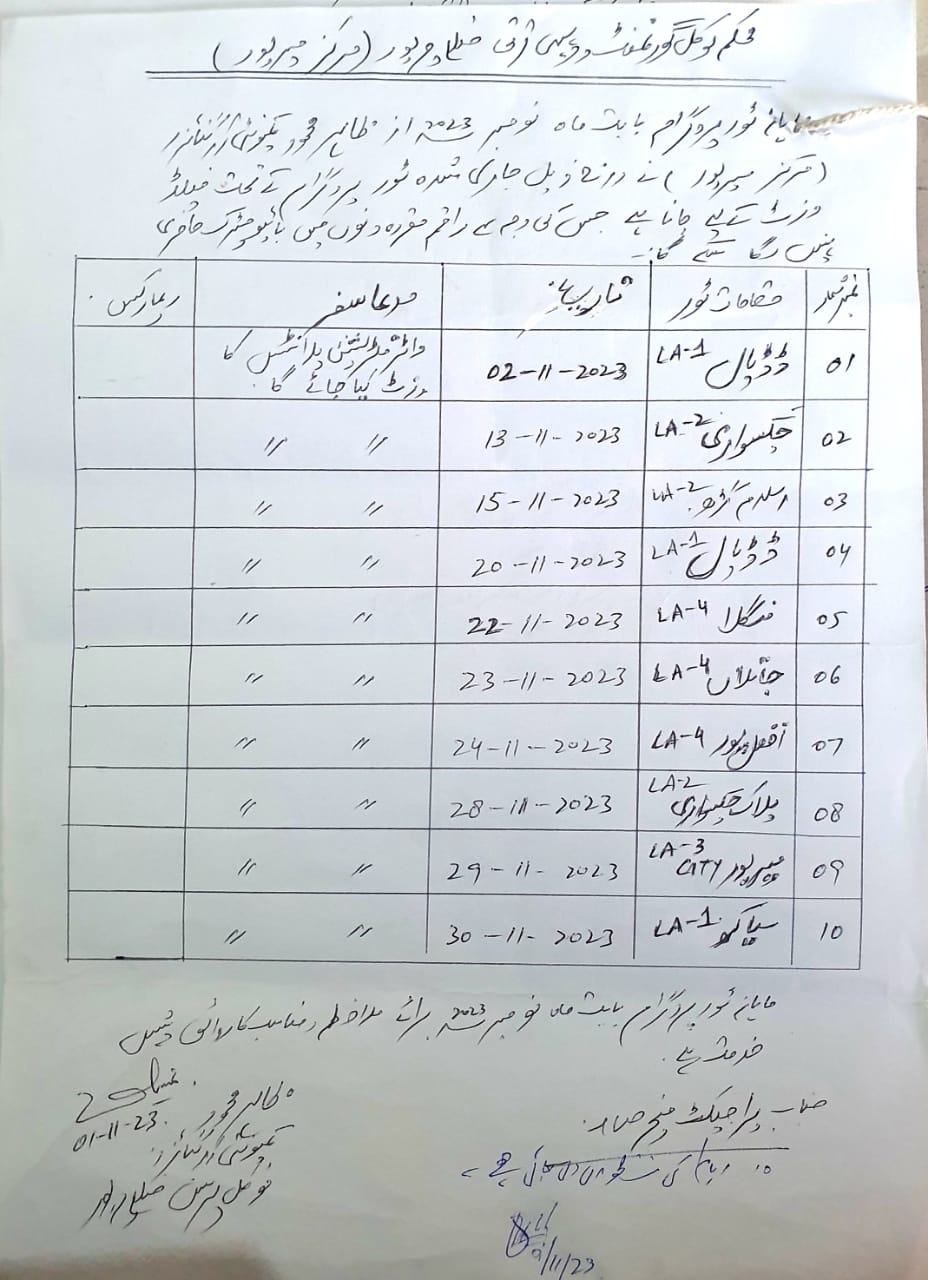 محکم لوکل گورنمنٹ و دیہی ترقی ضلع میرپور (مرکز میرپور)
ماہانہ ٹور پروگرام بابت ماہ نومبر 2023ء از طاہر محمود کمیونٹی آرگنائزر
(مرکز میرپور) نے درج ذیل جاری شدہ ٹور پروگرام کے تحت فیلڈ
وزٹ کے لیے جانا ہے جس کی وجہ سے راقم مقررہ دنوں میں بائیومیٹرک حاضری
نہیں لگا سکے گا۔
نمبر شمار مقامات ٹور تاریخ مدعا سفر ریمارکس
01 ڈڈیال LA-1 02-11-2023 واٹر فلٹریشن پلانٹس کا
وزٹ کیا جائے گا۔
02 چکسواری LA-2 13-11-2023 〃 〃
03 اسلام گڑھ LA-2 15-11-2023 〃 〃
04 ڈڈیال LA-1 20-11-2023 〃 〃
05 منگلا LA-4 22-11-2023 〃 〃
06 جاتلاں LA-4 23-11-2023 〃 〃
07 افضل پور LA-4 24-11-2023 〃 〃
08 پلاک چکسواری LA-2 28-11-2023 〃 〃
09 میرپور CITY LA-3 29-11-2023 〃 〃
10 سیاکھ LA-1 30-11-2023 〃 〃
ماہانہ ٹور پروگرام بابت ماہ نومبر 2023ء برائے ملاحظہ و مناسب کارروائی پیش
خدمت ہے۔
طاہر محمود 01-11-23
کمیونٹی آرگنائزر
فوکل پرسن ضلع میرپور
جناب پراجیکٹ منیجر صاحب
10 ایام کی منظوری دی جاتی ہے۔
/11/23